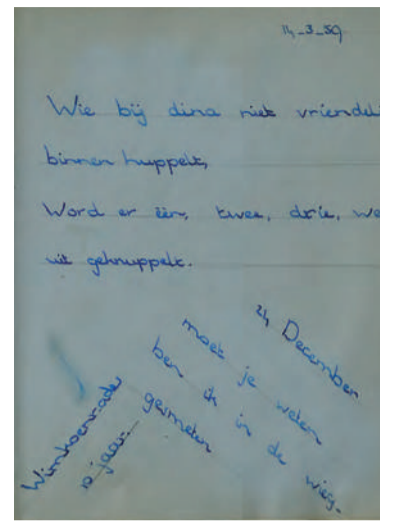 14-3-59
Wie bij dina niet vriendeli
binnen huppelt,
Word er één, twee, drie, we
uit geknuppelt.
24 December
moet je weten
ben ik in de wieg
gesmeten
10 jaar.